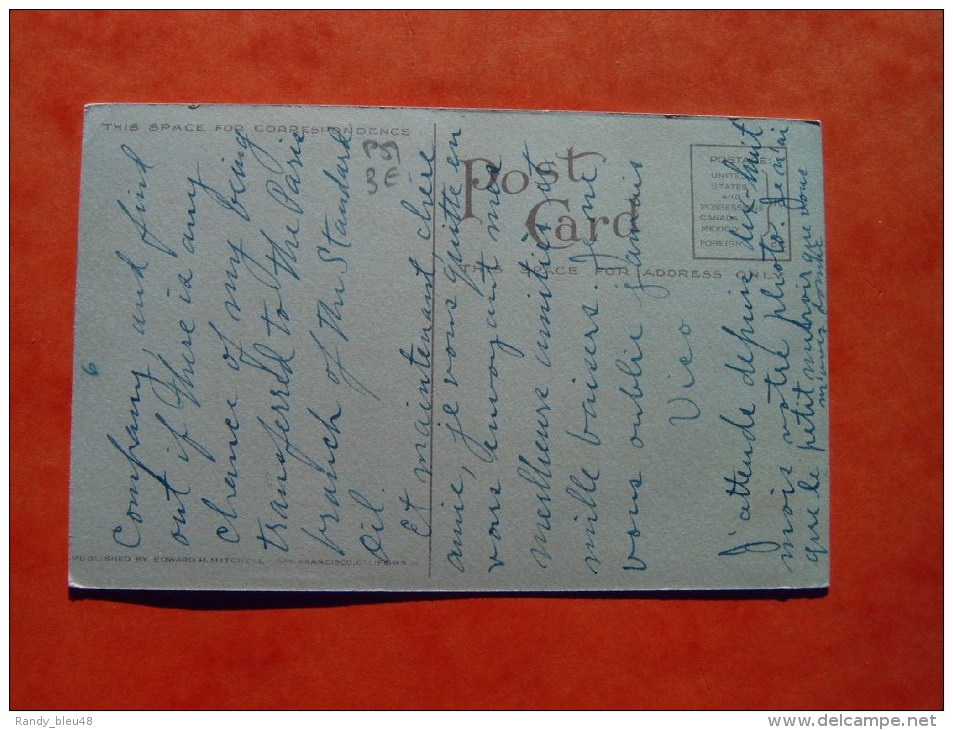 THIS SPACE FOR CORRESPONDENCE
Post
Card
THIS SPACE FOR ADDRESS ONLY
POSTAGE:
UNITED
STATES
AND
POSSESSIONS
CANADA
MEXICO
FOREIGN
PUBLISHED BY EDWARD H. MITCHELL, SAN FRANCISCO, CALIFORNIA
39
3E
6
Company, and find
out if there is any
chance of my being
transferred to the Paris
branch of the Standard
Oil.
Et maintenant chère
amie, je vous quitte en
vous envoyant mes
meilleures amitiés et
mille baisers. Je ne
vous oublie jamais
Vico
J'attends depuis dix-huit
mois votre photo. Je n'ai
que le petit miroir que vous
m'avez donné
Randy_bleu48
http://www.delcampe.net